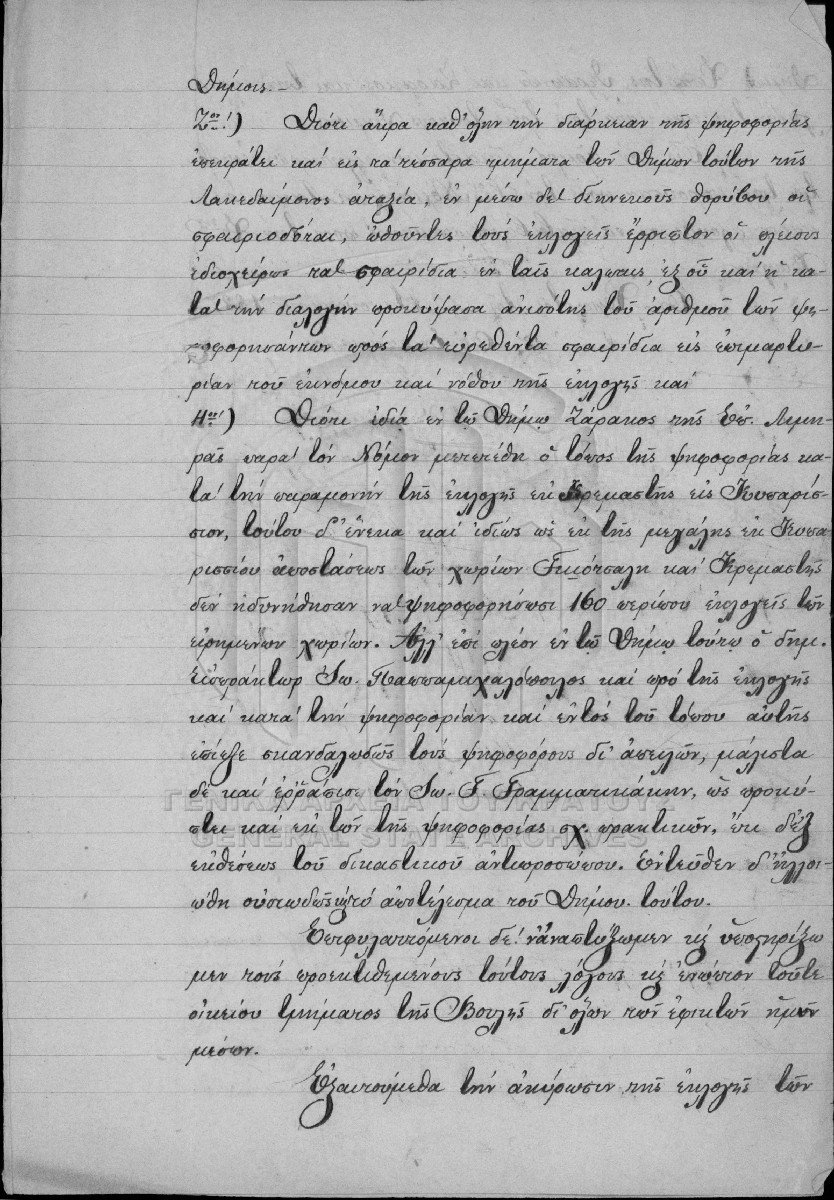 Δήμοις.—
Ζον!) Διότι ἄκρα καθ' ὅλην τὴν διάρκειαν τῆς ψηφοφορίας
ἐπεκράτει καὶ εἰς τὰ τέσσαρα τμήματα τῶν Δήμων τούτων τῆς
Λακεδαίμονος ἀταξία, ἐν μέσῳ δὲ διηνεκοῦς θορύβου οἱ
σφαιριοδόται, ὠθοῦντες τοὺς ἐκλογεῖς ἔρριπτον οἱ πλείους
ἰδιοχείρως τὰ σφαιρίδια ἐν ταῖς κάλπαις, ἐξ οὗ καὶ ἡ κα-
τὰ τὴν διαλογὴν προκύψασα ἀνισότης τοῦ ἀριθμοῦ τῶν ψη-
φοφορησάντων πρὸς τὰ εὑρεθέντα σφαιρίδια εἰς ἐπιμαρτυ-
ρίαν τοῦ ἐκνόμου καὶ νόθου τῆς ἐκλογῆς καὶ
Ηον!) Διότι ἰδίᾳ ἐν τῷ Δήμῳ Ζάρακος τῆς Ἐπ. Λιμη-
ρᾶς παρὰ τὸν Νόμον μετετέθη ὁ τόπος τῆς ψηφοφορίας κα-
τὰ τὴν παραμονὴν τῆς ἐκλογῆς ἐκ Κρεμαστῆς εἰς Κυπαρίσ-
σιον, τούτου δ' ἕνεκα καὶ ἰδίως ὡς ἐκ τῆς μεγάλης ἐκ Κυπα-
ρισσίου ἀποστάσεως τῶν χωρίων Γκιότσαλη καὶ Κρεμαστῆς
δὲν ἠδυνήθησαν νὰ ψηφοφορήσωσι 160 περίπου ἐκλογεῖς τῶν
εἰρημένων χωρίων. Ἀλλ' ἐπὶ πλέον ἐν τῷ Δήμῳ τούτῳ ὁ δημ.
Εἰσπράκτωρ Ἰω. Παππαμιχαλόπουλος καὶ πρὸ τῆς ἐκλογῆς
καὶ κατὰ τὴν ψηφοφορίαν καὶ ἐντὸς τοῦ τόπου αὐτῆς
ἐπίεζε σκανδαλωδῶς τοὺς ψηφοφόρους δι' ἀπειλῶν, μάλιστα
δὲ καὶ ἐρράπισε τὸν Ἰω. Γ. Γραμματικάκην, ὡς προκύ-
πτει καὶ ἐκ τῶν τῆς ψηφοφορίας σχ. πρακτικῶν,
ἐκθέσεως τοῦ δικαστικοῦ ἀντιπροσώπου. Ἐντεῦθεν δ' ἠλλοι-
ώθη οὐσιωδῶς τὸ ἀποτέλεσμα τοῦ Δήμου τούτου.
Ἐπιφυλαττόμενοι δὲ ν' ἀναπτύξωμεν κ ὑποστηρίξω
μεν τοὺς προεκτιθεμένους τούτους λόγους κ ἐνώπιον τοῦ
οἰκείου τμήματος τῆς Βουλῆς δι' ὅλων τῶν ἐφικτῶν ἡμῖν
μέσων.
Ἐξαιτούμεθα τὴν ἀκύρωσιν τῆς ἐκλογῆς τῶν
ΓΕΝΙΚΑ ΑΡΧΕΙΑ ΤΟΥ ΚΡΑΤΟΥΣ
GENERAL STATE ARCHIVES